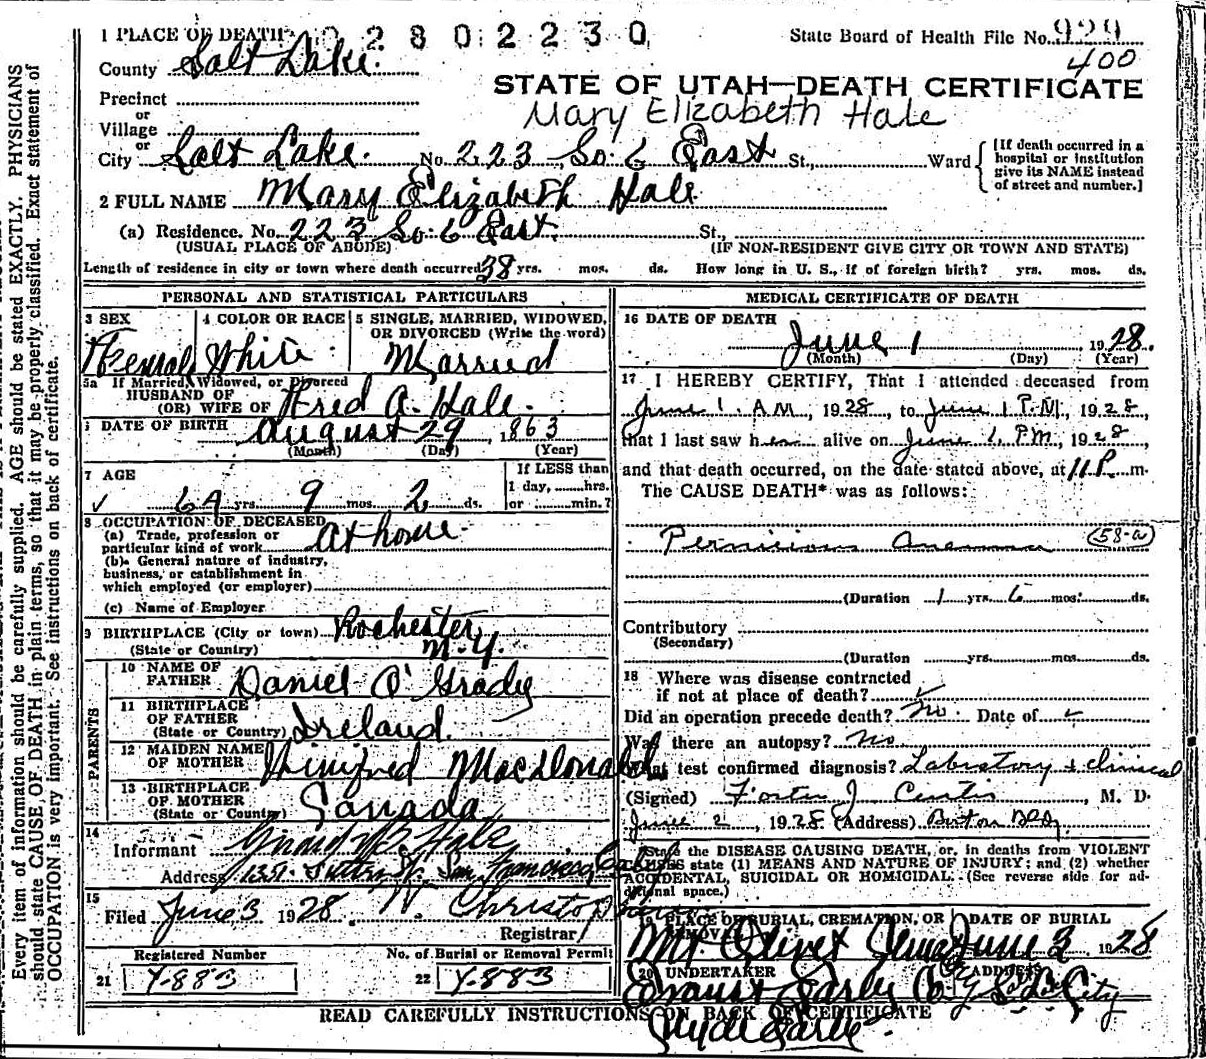 1 PLACE OF DEATH 0 2 8 0 2 2 3 0 State Board of Health File No. 929
County Salt Lake. 400
STATE OF UTAH—DEATH CERTIFICATE
Precinct
or
Village
Mary Elizabeth Hale
or
City Salt Lake. No. 223 So. 6 East St., Ward
[If death occurred in a
hospital or institution
give its NAME instead
of street and number.]
2 FULL NAME Mary Elizabeth Hale
(a) Residence. No. 223 So. 6 East. St.,
(USUAL PLACE OF ABODE) (IF NON-RESIDENT GIVE CITY OR TOWN AND STATE)
Length of residence in city or town where death occurred 38 yrs. mos. ds. How long in U. S., if of foreign birth? yrs. mos. ds.
PERSONAL AND STATISTICAL PARTICULARS
3 SEX
Female
4 COLOR OR RACE
White
5 SINGLE, MARRIED, WIDOWED,
OR DIVORCED (Write the word)
Married
5a If Married, Widowed, or Divorced
HUSBAND OF
(OR) WIFE OF Fred A. Hale.
DATE OF BIRTH August 29, 1863
(Month) (Day) (Year)
7 AGE
64 yrs. 9 mos. 2 ds.
If LESS than
1 day, hrs.
or min.?
8 OCCUPATION OF DECEASED
(a) Trade, profession or
particular kind of work at home
(b) General nature of industry,
business, or establishment in
which employed (or employer)
(c) Name of Employer
9 BIRTHPLACE (City or town) Rochester
(State or Country) N.Y.
PARENTS
10 NAME OF
FATHER Daniel O'Grady
11 BIRTHPLACE
OF FATHER
(State or Country) Ireland.
12 MAIDEN NAME
OF MOTHER Winifred MacDonald
13 BIRTHPLACE
OF MOTHER
(State or Country) Canada
14
Informant Hale
Address San Francisco, Calif
15
Filed June 3 1928
Registrar
Registered Number
21 Y-883
No. of Burial or Removal Permit
22 Y-883
MEDICAL CERTIFICATE OF DEATH
16 DATE OF DEATH
June 1 1928.
(Month) (Day) (Year)
17 I HEREBY CERTIFY, That I attended deceased from
June 1. A.M., 1928, to June 1 P.M., 1928,
that I last saw her alive on June 1. P.M., 1928,
and that death occurred, on the date stated above, at 11 P. m.
The CAUSE DEATH* was as follows:
Pernicious Anemia (58-a)
(Duration 1 yrs. 6 mos. ds.
Contributory
(Secondary)
(Duration yrs. mos. ds.
18 Where was disease contracted
if not at place of death?
Did an operation precede death? no. Date of
Was there an autopsy? no
What test confirmed diagnosis? Laboratory & clinical
(Signed) Foster J. Curtis, M. D.
June 2, 1928 (Address) Boston Bldg.
*State the DISEASE CAUSING DEATH, or, in deaths from VIOLENT
CAUSES state (1) MEANS AND NATURE OF INJURY; and (2) whether
ACCIDENTAL, SUICIDAL OR HOMICIDAL. (See reverse side for ad-
ditional space.)
19 PLACE OF BURIAL, CREMATION, OR REMOVAL
Mt. Olivet
DATE OF BURIAL
June 3 1928
20 UNDERTAKER ADDRESS
S. L. City
READ CAREFULLY INSTRUCTIONS ON BACK OF CERTIFICATE
Every item of information should be carefully supplied. AGE should be stated EXACTLY. PHYSICIANS
should state CAUSE OF DEATH in plain terms, so that it may be properly classified. Exact statement of
OCCUPATION is very important. See instructions on back of certificate.